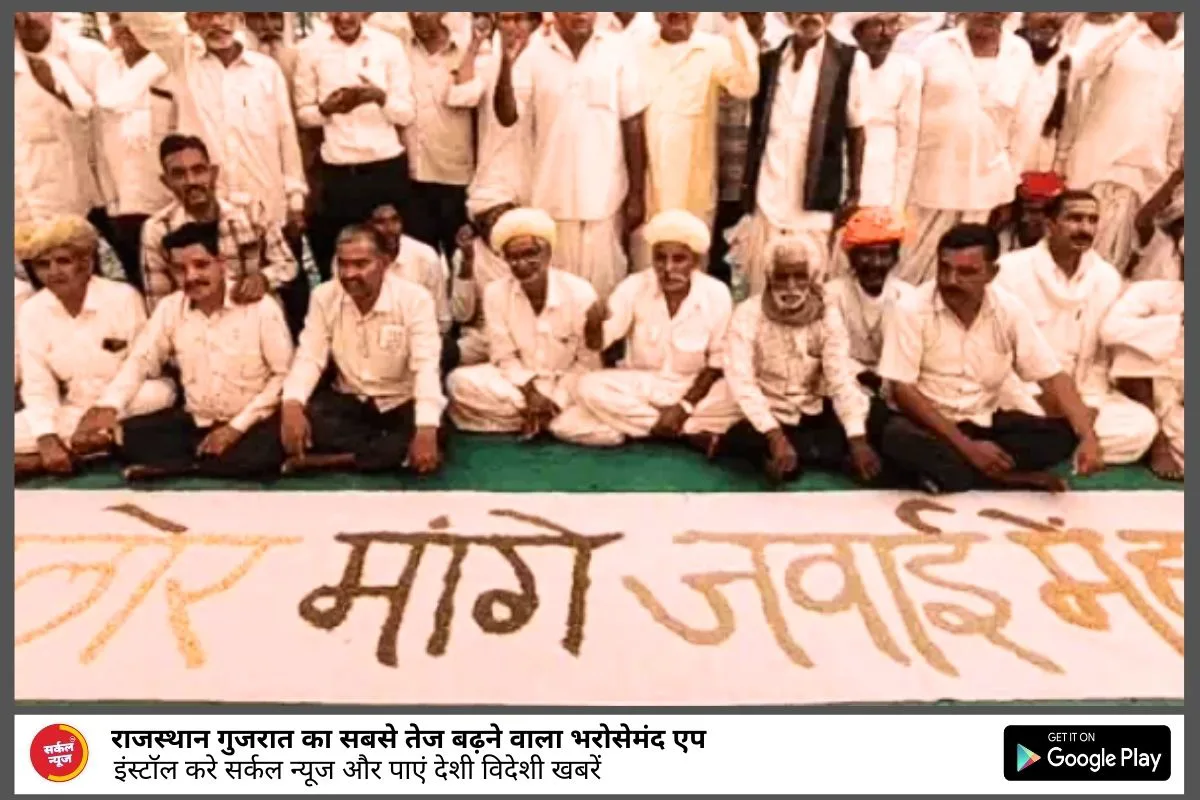 लोर मांगे जवाई में ह
सर्कल
न्यूज
राजस्थान गुजरात का सबसे तेज बढ़ने वाला भरोसेमंद एप
इंस्टॉल करे सर्कल न्यूज और पाएं देशी विदेशी खबरें
GET IT ON
Google Play